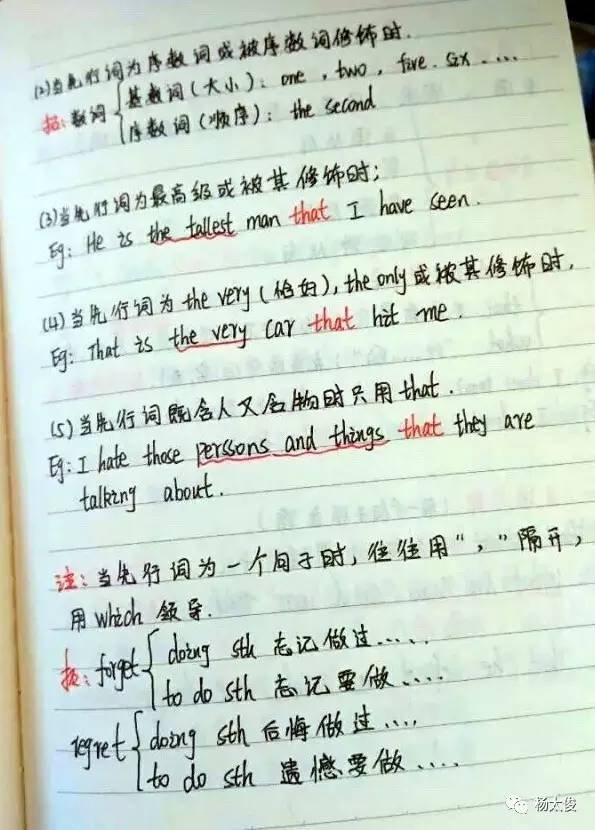 (2)当先行词为序数词或被序数词修饰时.
拓:数词{基数词(大小): one , two , five. six ....
序数词(顺序): the second
(3)当先行词为最高级或被其修饰时;
Eg: He is the tallest man that I have seen.
(4)当先行词为 the very (恰好), the only 或被其修饰时.
Eg: That is the very car that hit me.
(5)当先行词既含人又含物时只用 that .
Eg: I hate those perssons and things that they are
talking about.
注:当先行词为一个句子时,往往用“,”隔开,
用 which 领导.
拓: forget{doing sth 忘记做过.....
to do sth 忘记要做....
regret{doing sth 后悔做过....
to do sth 遗憾要做....
杨太俊